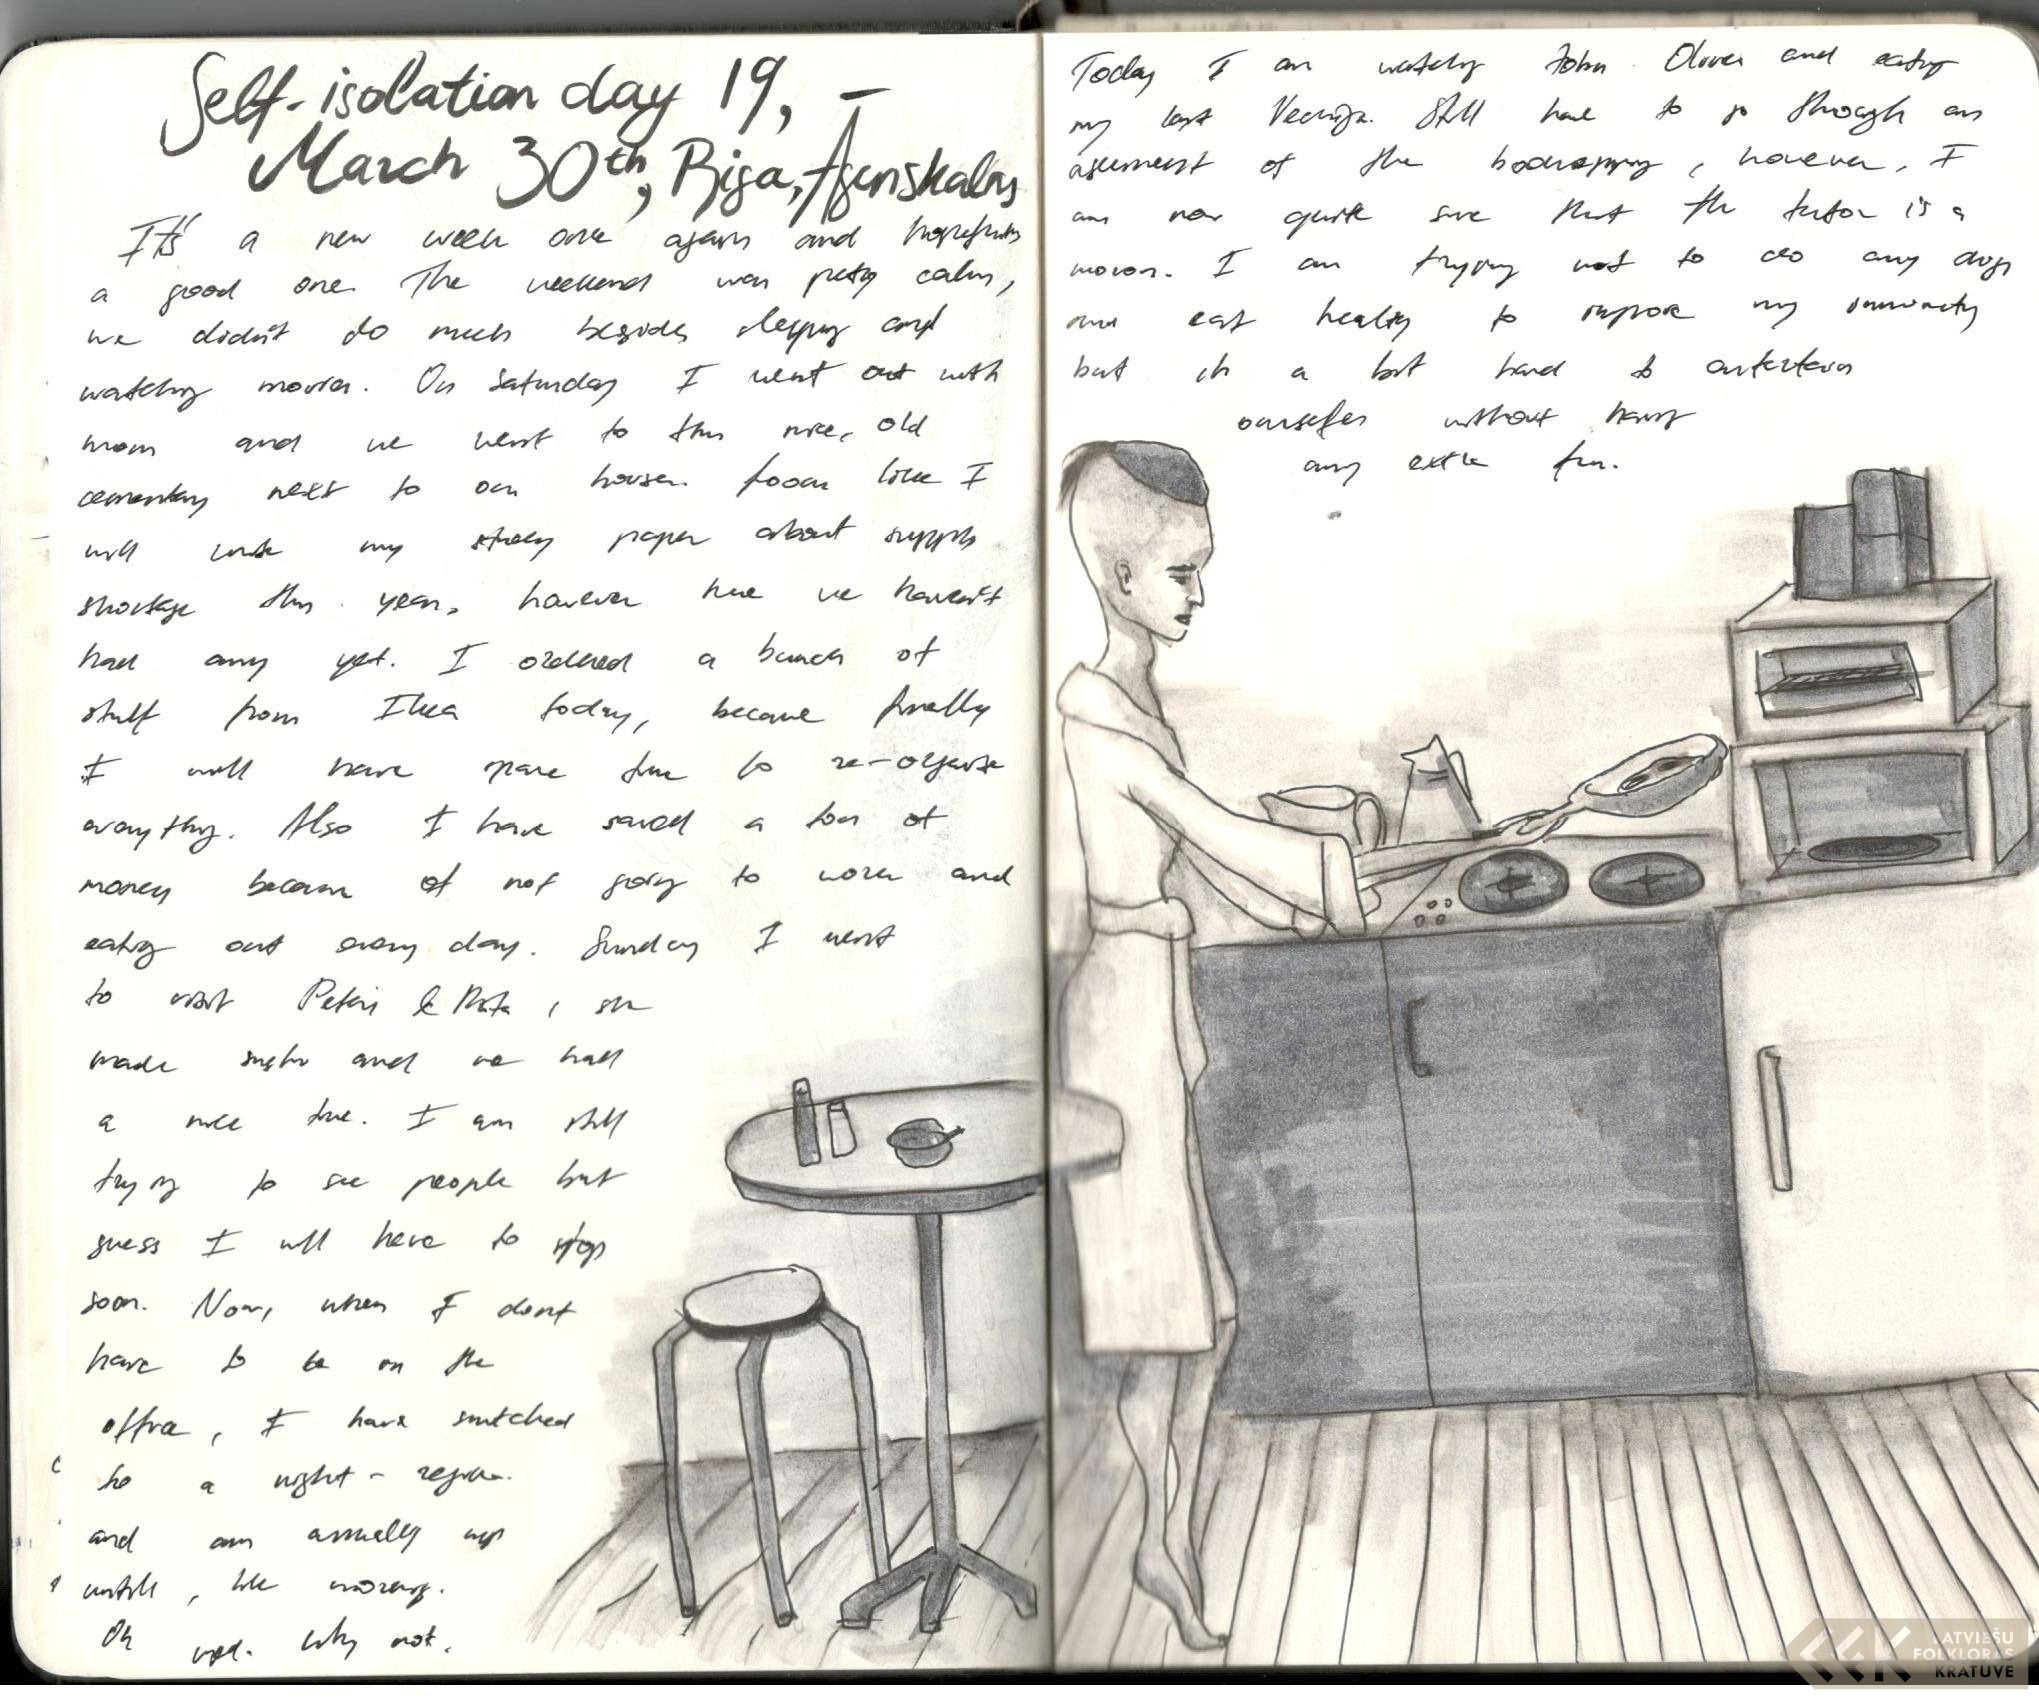 Self-isolation day 19,
March 30th, Riga, Āgenskalns
It's a new week once again and hopefully
a good one. The weekend was pretty calm,
we didn't do much besides sleeping and
watching movies. On Saturday I went out with
mom and we went to this nice, old
cementary next to our house. looks like I
will write my study paper about supply
shortage this year, however here we haven't
had any yet. I ordered a bunch of
stuff from Ikea today, because finally
I will have spare time to re-organise
everything. Also I have saved a ton of
money because of not going to work and
eating out every day. Sunday I went
to visit Peteris & , she
made sushi and we had
a nice time. I am still
trying to see people but
guess I will have to stop
soon. Now, when I don't
have to be in the
office, I have switched
to a night-regime
and am usually up
untill, like morning.
Oh well. Why not.
Today I am watching John Oliver and eating
my last . Still have to go through an
of the , however, I
am now quite sure that the tutor is a
moron. I am trying not to do any drugs
and eat healthy to improve my immunity
but its a bit hard to entertain
ourselfes without having
any extra fun.
LATVIEŠU
FOLKLORAS
KRĀTUVE